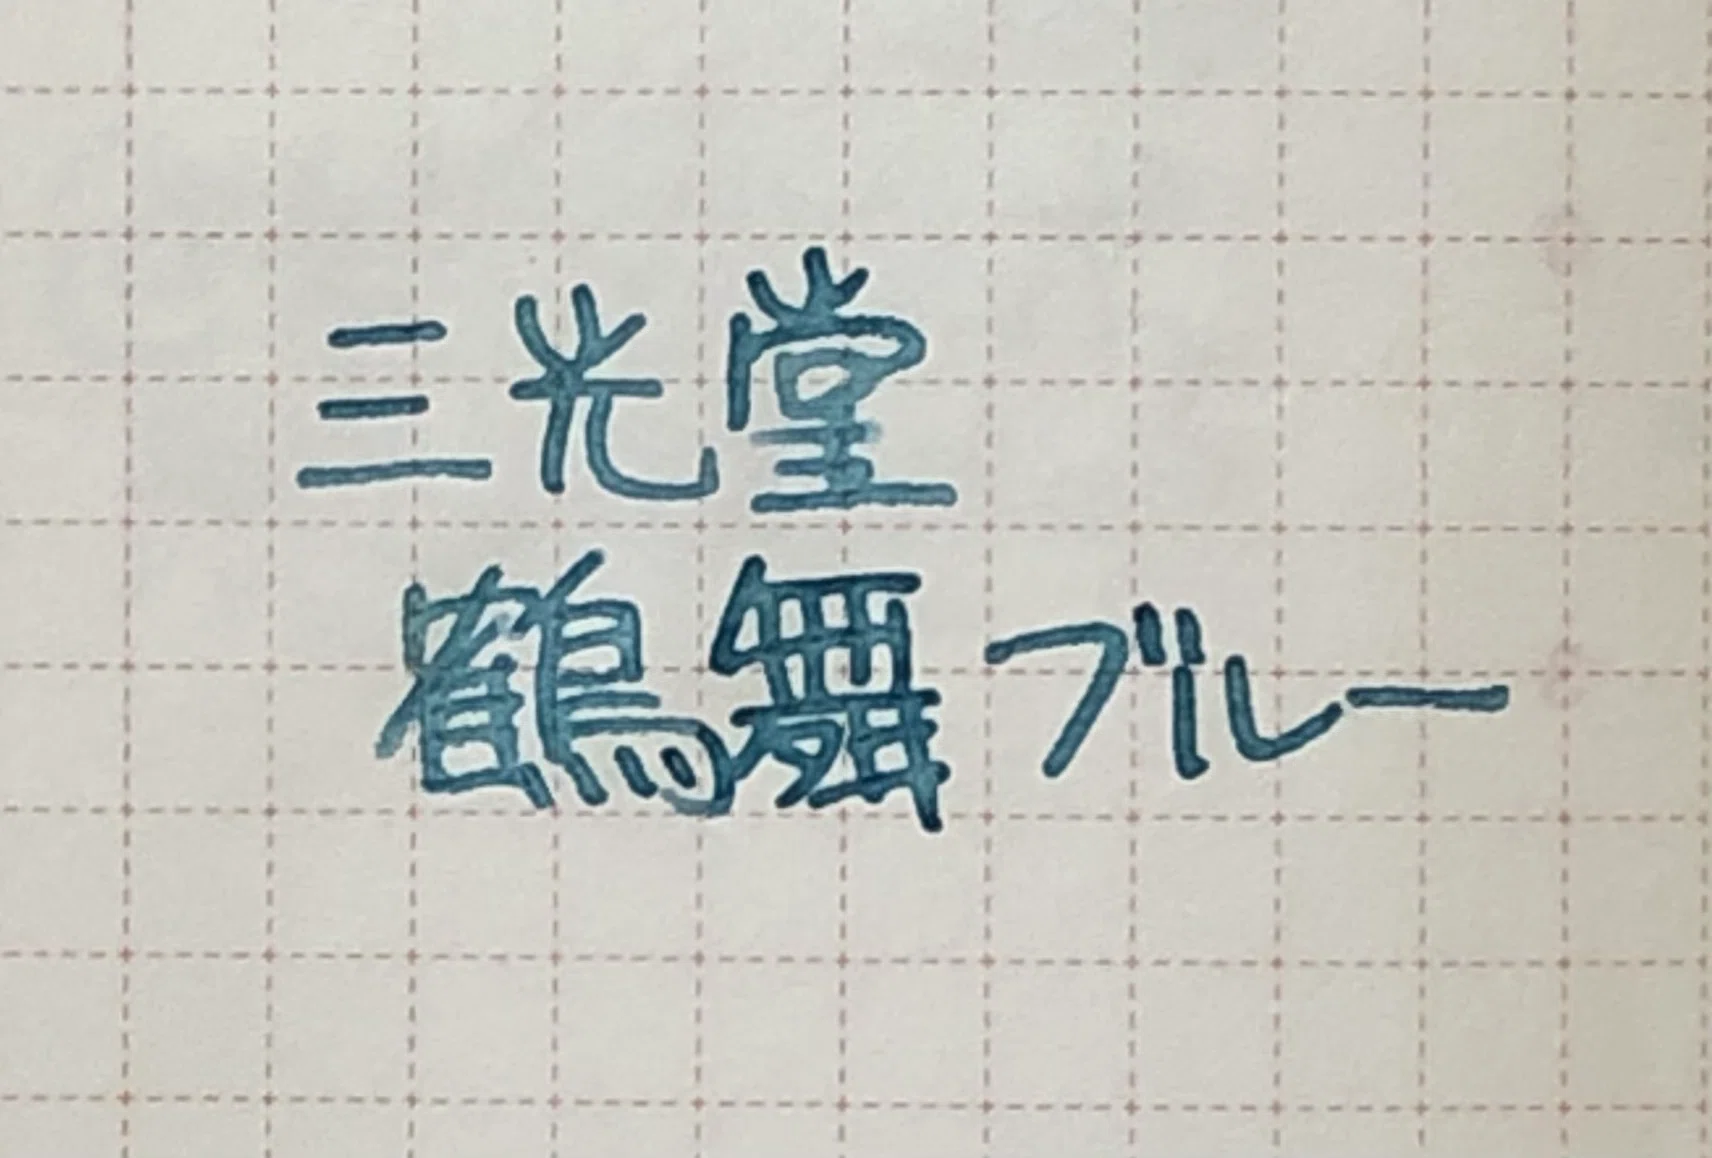 三光堂
鶴舞ブルー